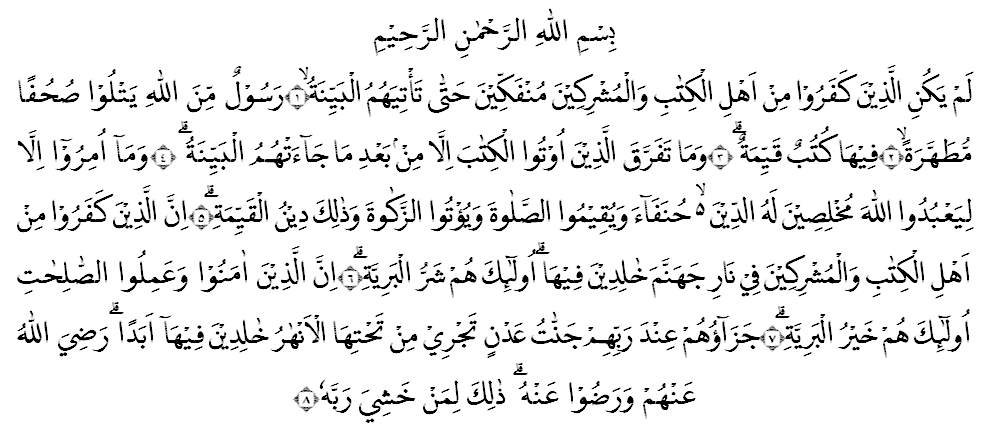 بِسْمِ اللهِ الرَّحْمٰنِ الرَّحِيْمِ
لَمْ يَكُنِ الَّذِيْنَ كَفَرُوْا مِنْ اَهْلِ الْكِتٰبِ وَالْمُشْرِكِيْنَ مُنْفَكِّيْنَ حَتّٰى تَأْتِيَهُمُ الْبَيِّنَةُ ۙ ﴿١﴾ رَسُوْلٌ مِّنَ اللهِ يَتْلُوْا صُحُفًا
مُّطَهَّرَةً ۙ ﴿٢﴾ فِيْهَا كُتُبٌ قَيِّمَةٌ ۗ ﴿٣﴾ وَمَا تَفَرَّقَ الَّذِيْنَ اُوْتُوا الْكِتٰبَ اِلَّا مِنْۢ بَعْدِ مَا جَآءَتْهُمُ الْبَيِّنَةُ ۗ ﴿٤﴾ وَمَآ اُمِرُوْٓا اِلَّا
لِيَعْبُدُوا اللهَ مُخْلِصِيْنَ لَهُ الدِّيْنَ ەۙ حُنَفَآءَ وَيُقِيْمُوا الصَّلٰوةَ وَيُؤْتُوا الزَّكٰوةَ وَذٰلِكَ دِيْنُ الْقَيِّمَةِ ۗ ﴿٥﴾ اِنَّ الَّذِيْنَ كَفَرُوْا مِنْ
اَهْلِ الْكِتٰبِ وَالْمُشْرِكِيْنَ فِيْ نَارِ جَهَنَّمَ خٰلِدِيْنَ فِيْهَا ۗ اُولٰٓئِكَ هُمْ شَرُّ الْبَرِيَّةِ ۗ ﴿٦﴾ اِنَّ الَّذِيْنَ اٰمَنُوْا وَعَمِلُوا الصّٰلِحٰتِ
اُولٰٓئِكَ هُمْ خَيْرُ الْبَرِيَّةِ ۗ ﴿٧﴾ جَزَآؤُهُمْ عِنْدَ رَبِّهِمْ جَنّٰتُ عَدْنٍ تَجْرِيْ مِنْ تَحْتِهَا الْاَنْهٰرُ خٰلِدِيْنَ فِيْهَآ اَبَدًا ۗ رَضِيَ اللهُ
عَنْهُمْ وَرَضُوْا عَنْهُ ۗ ذٰلِكَ لِمَنْ خَشِيَ رَبَّهٗ ﴿٨﴾